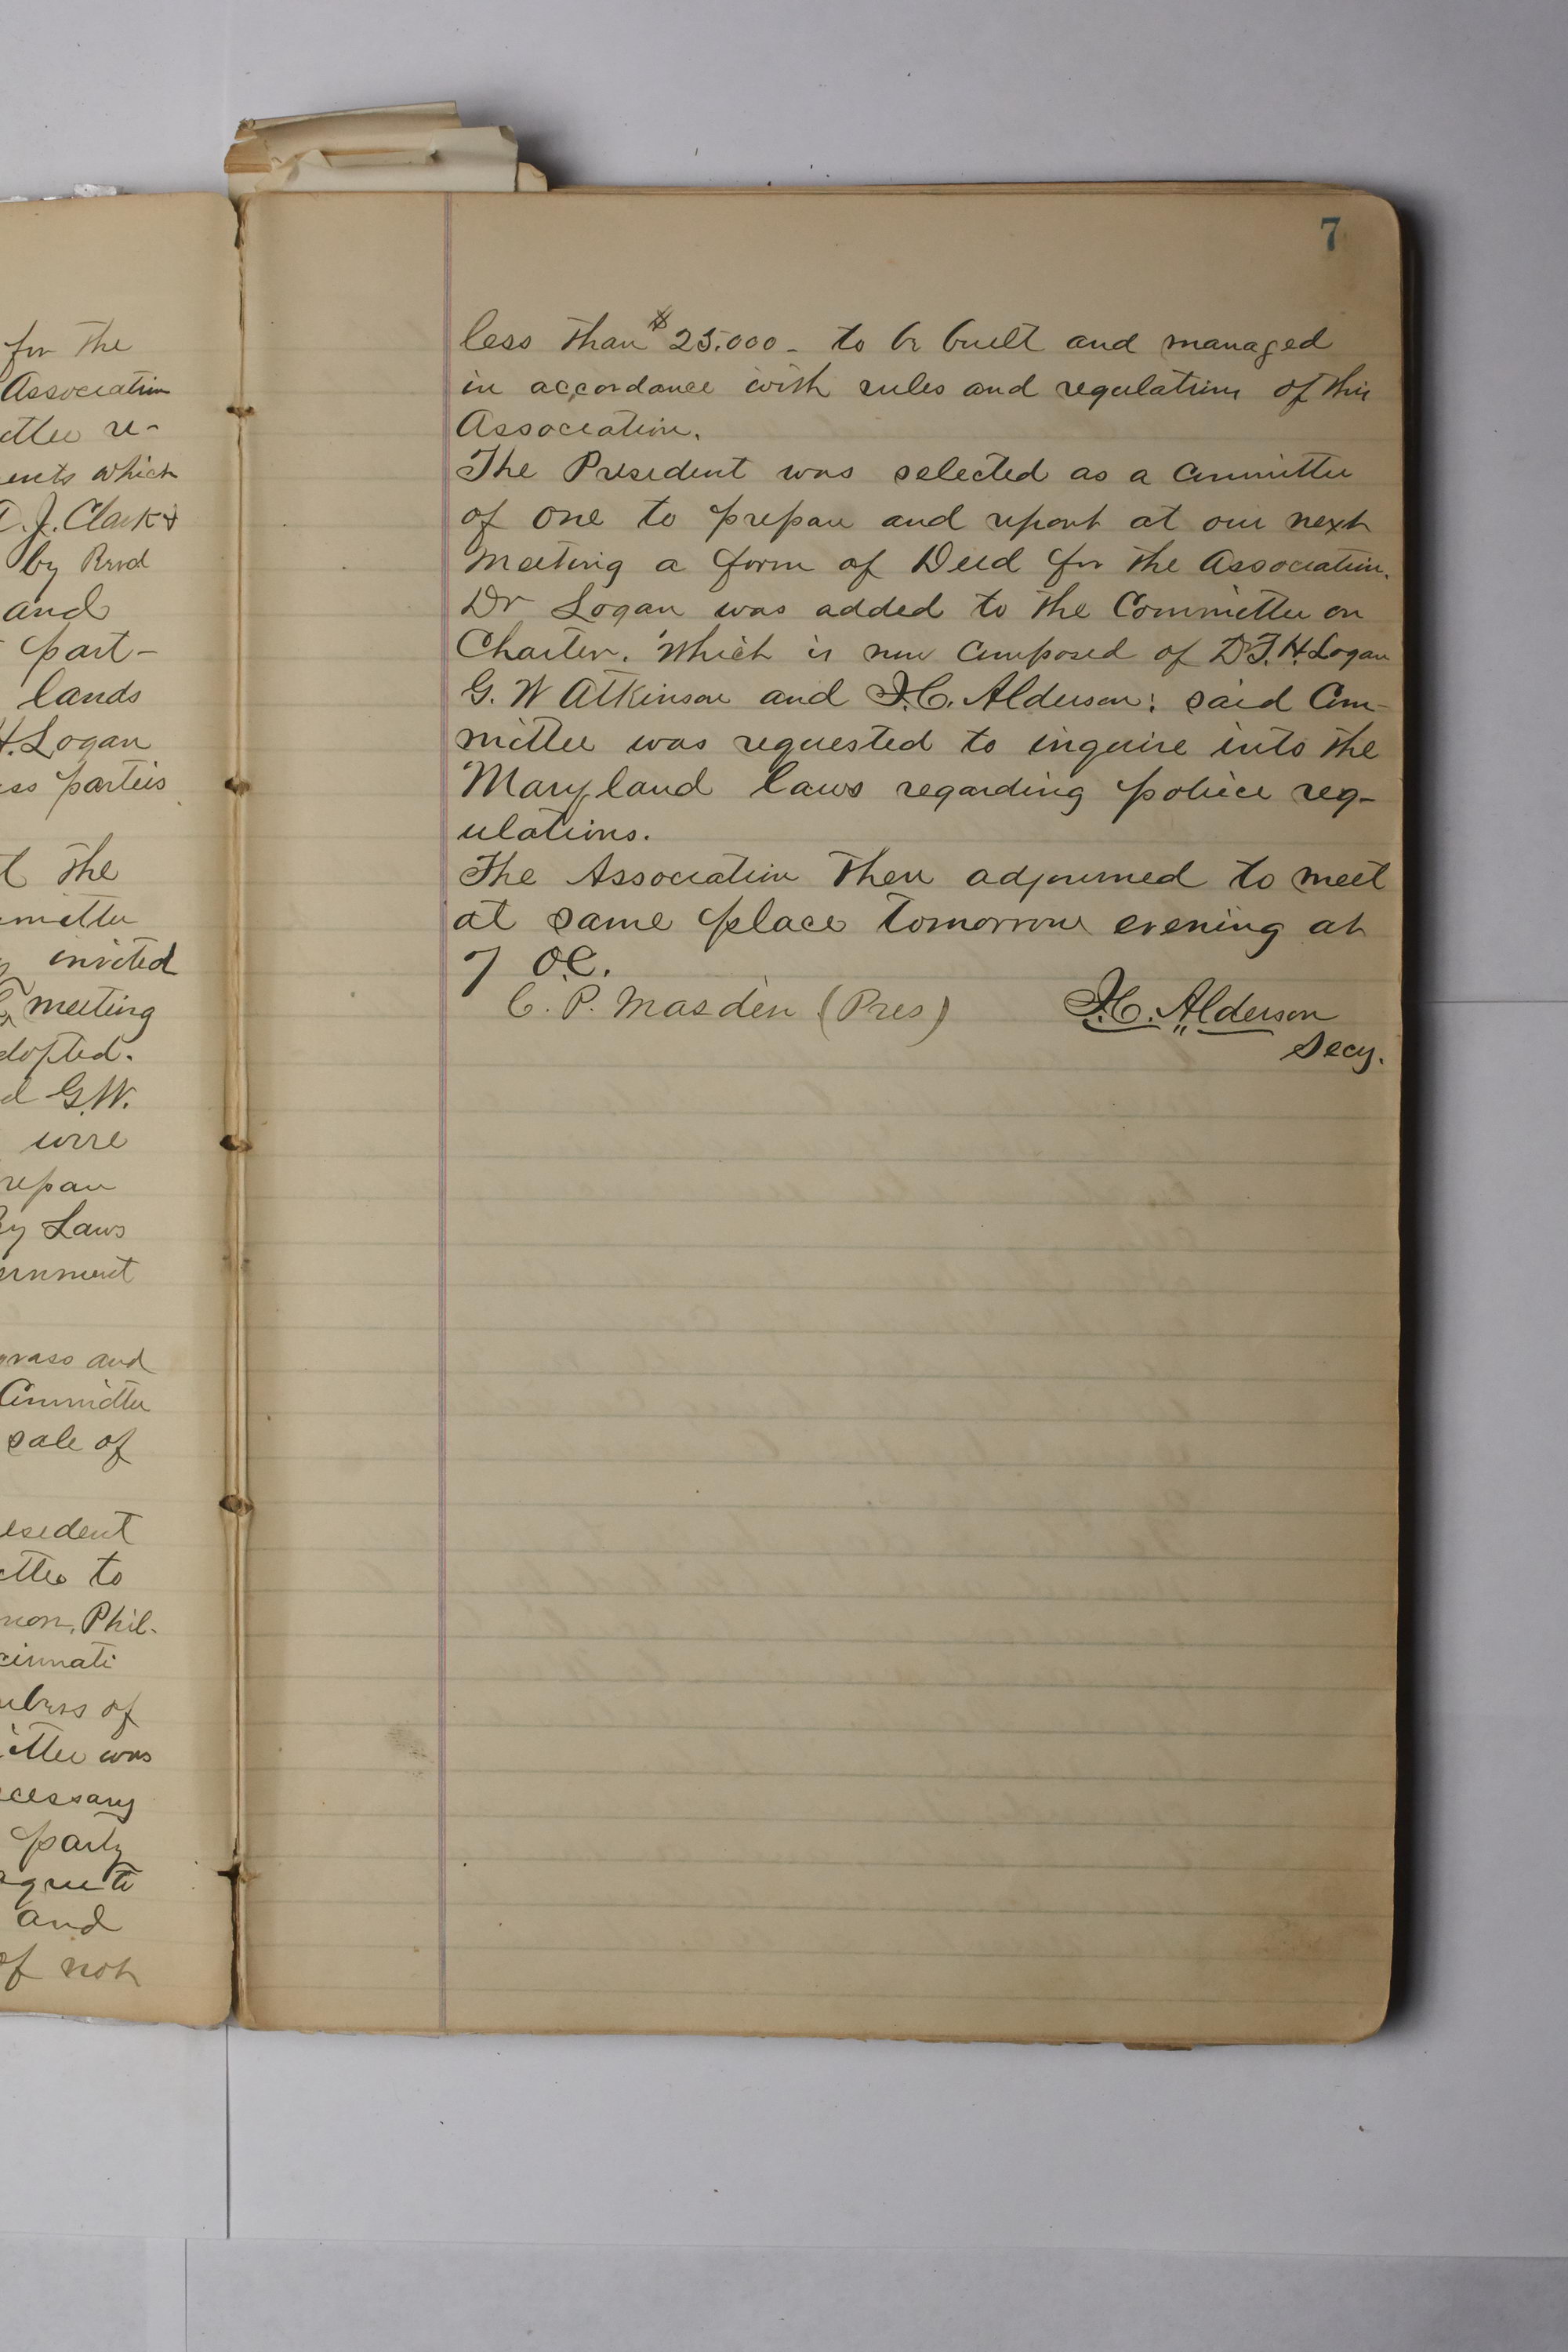 for the
Association
ittee re-
ents which
D.J. Clark &
by Revd
and
part-
lands
H. Logan
ess parties
the
mittee
invited
meeting
dopted.
d G.W.
were
repare
By Laws
ernment
grass and
Committee
sale of
esident
ittee to
mon, Phil-
cinnati
mbers of
ittee was
ecessary
party
agree to
and
of not
7
less than $25.000 - to be built and managed
in accordance with rules and regulations of this
Association.
The President was selected as a Committee
of one to prepare and report at our next
meeting a form of Deed for the Association.
Dr Logan was added to the Committee on
Charter. Which is now Composed of Dr J.H. Logan
G. W Atkinson and J.C. Alderson; said Com-
mittee was requested to inquire into the
Maryland laws regarding police reg-
ulations.
The Association then adjourned to meet
at same place tomorrow evening at
7 O.C.
C. P. Masden (Pres) J.C. Alderson
Secy.